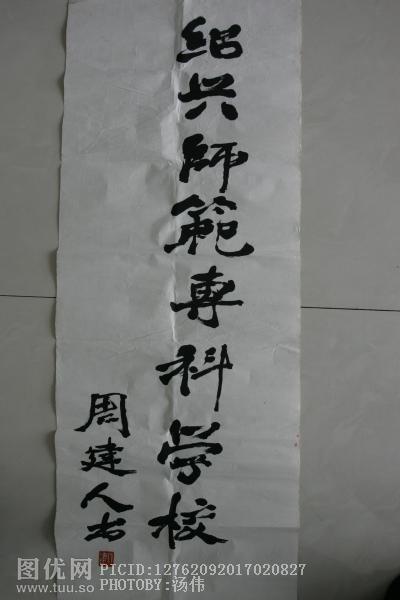 绍兴師範専科学校
周建人书
图优网
www.tuu.so
PICID:12762092017020827
PHOTOBY:汤伟